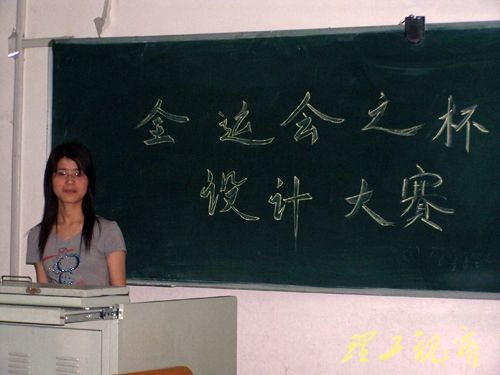 全运会之杯
设计大赛
理工视界